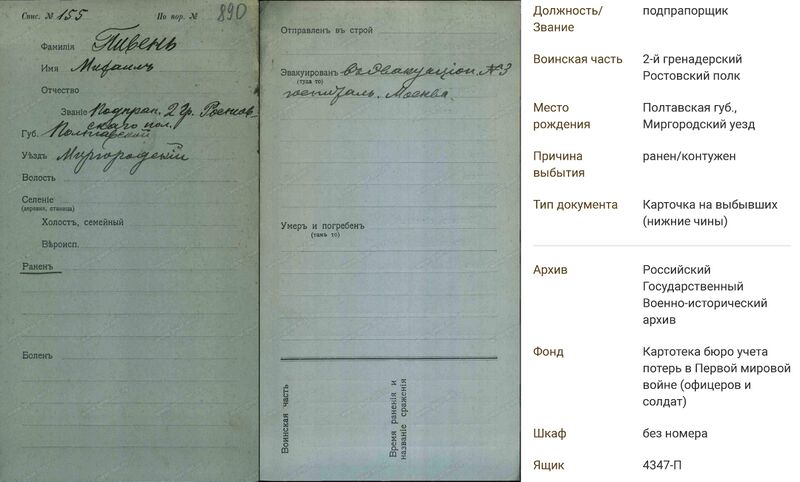 Спис. № 155 По пор. № 890
Фамилія Пивень
Имя Михаилъ
Отчество
Званіе Подпрап. 2 Гр. Ростов-
скаго пол.
Губ. Полтавской
Уѣздъ Миргородскій
Волость
Селеніе
(деревня, станица)
Холостъ, семейный
Вѣроисп.
Раненъ
Боленъ
Отправленъ въ строй
Эвакуированъ въ Эвакуаціон. №3
(туда то)
госпиталь. Москва.
Умеръ и погребенъ
(тамъ то)
Воинская часть
Время раненія и
названіе сраженія
Должность/ подпрапорщик
Звание
Воинская часть 2-й гренадерский
Ростовский полк
Место Полтавская губ.,
рождения Миргородский уезд
Причина ранен/контужен
выбытия
Тип документа Карточка на выбывших
(нижние чины)
Архив Российский
Государственный
Военно-исторический
архив
Фонд Картотека бюро учета
потерь в Первой мировой
войне (офицеров и
солдат)
Шкаф без номера
Ящик 4347-П